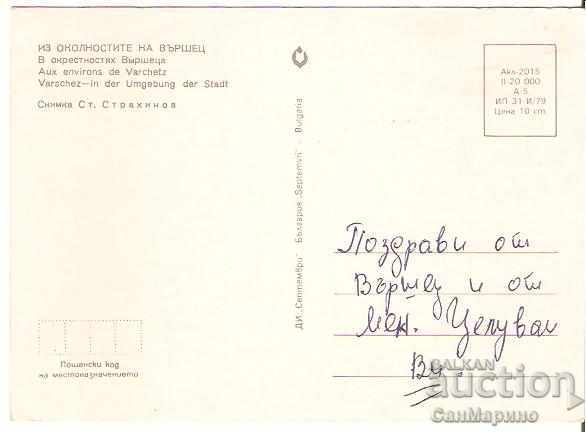 ИЗ ОКОЛНОСТИТЕ НА ВЪРШЕЦ
В окрестностях Выршеца
Aux environs de Varchetz
Varschez—in der Umgebung der Stadt
Снимка Ст. Страхинов
ДИ „Септември" - България „Septemvri" - Bulgaria
Акл-2015
II 20 000
А-5
ИП 31-И/79
Цена 10 ст.
Поздрави от
Вършец и от
мен. Целувам
Ви.
Пощенски код
на местоназначението
BALKAN
auction
СанМарино